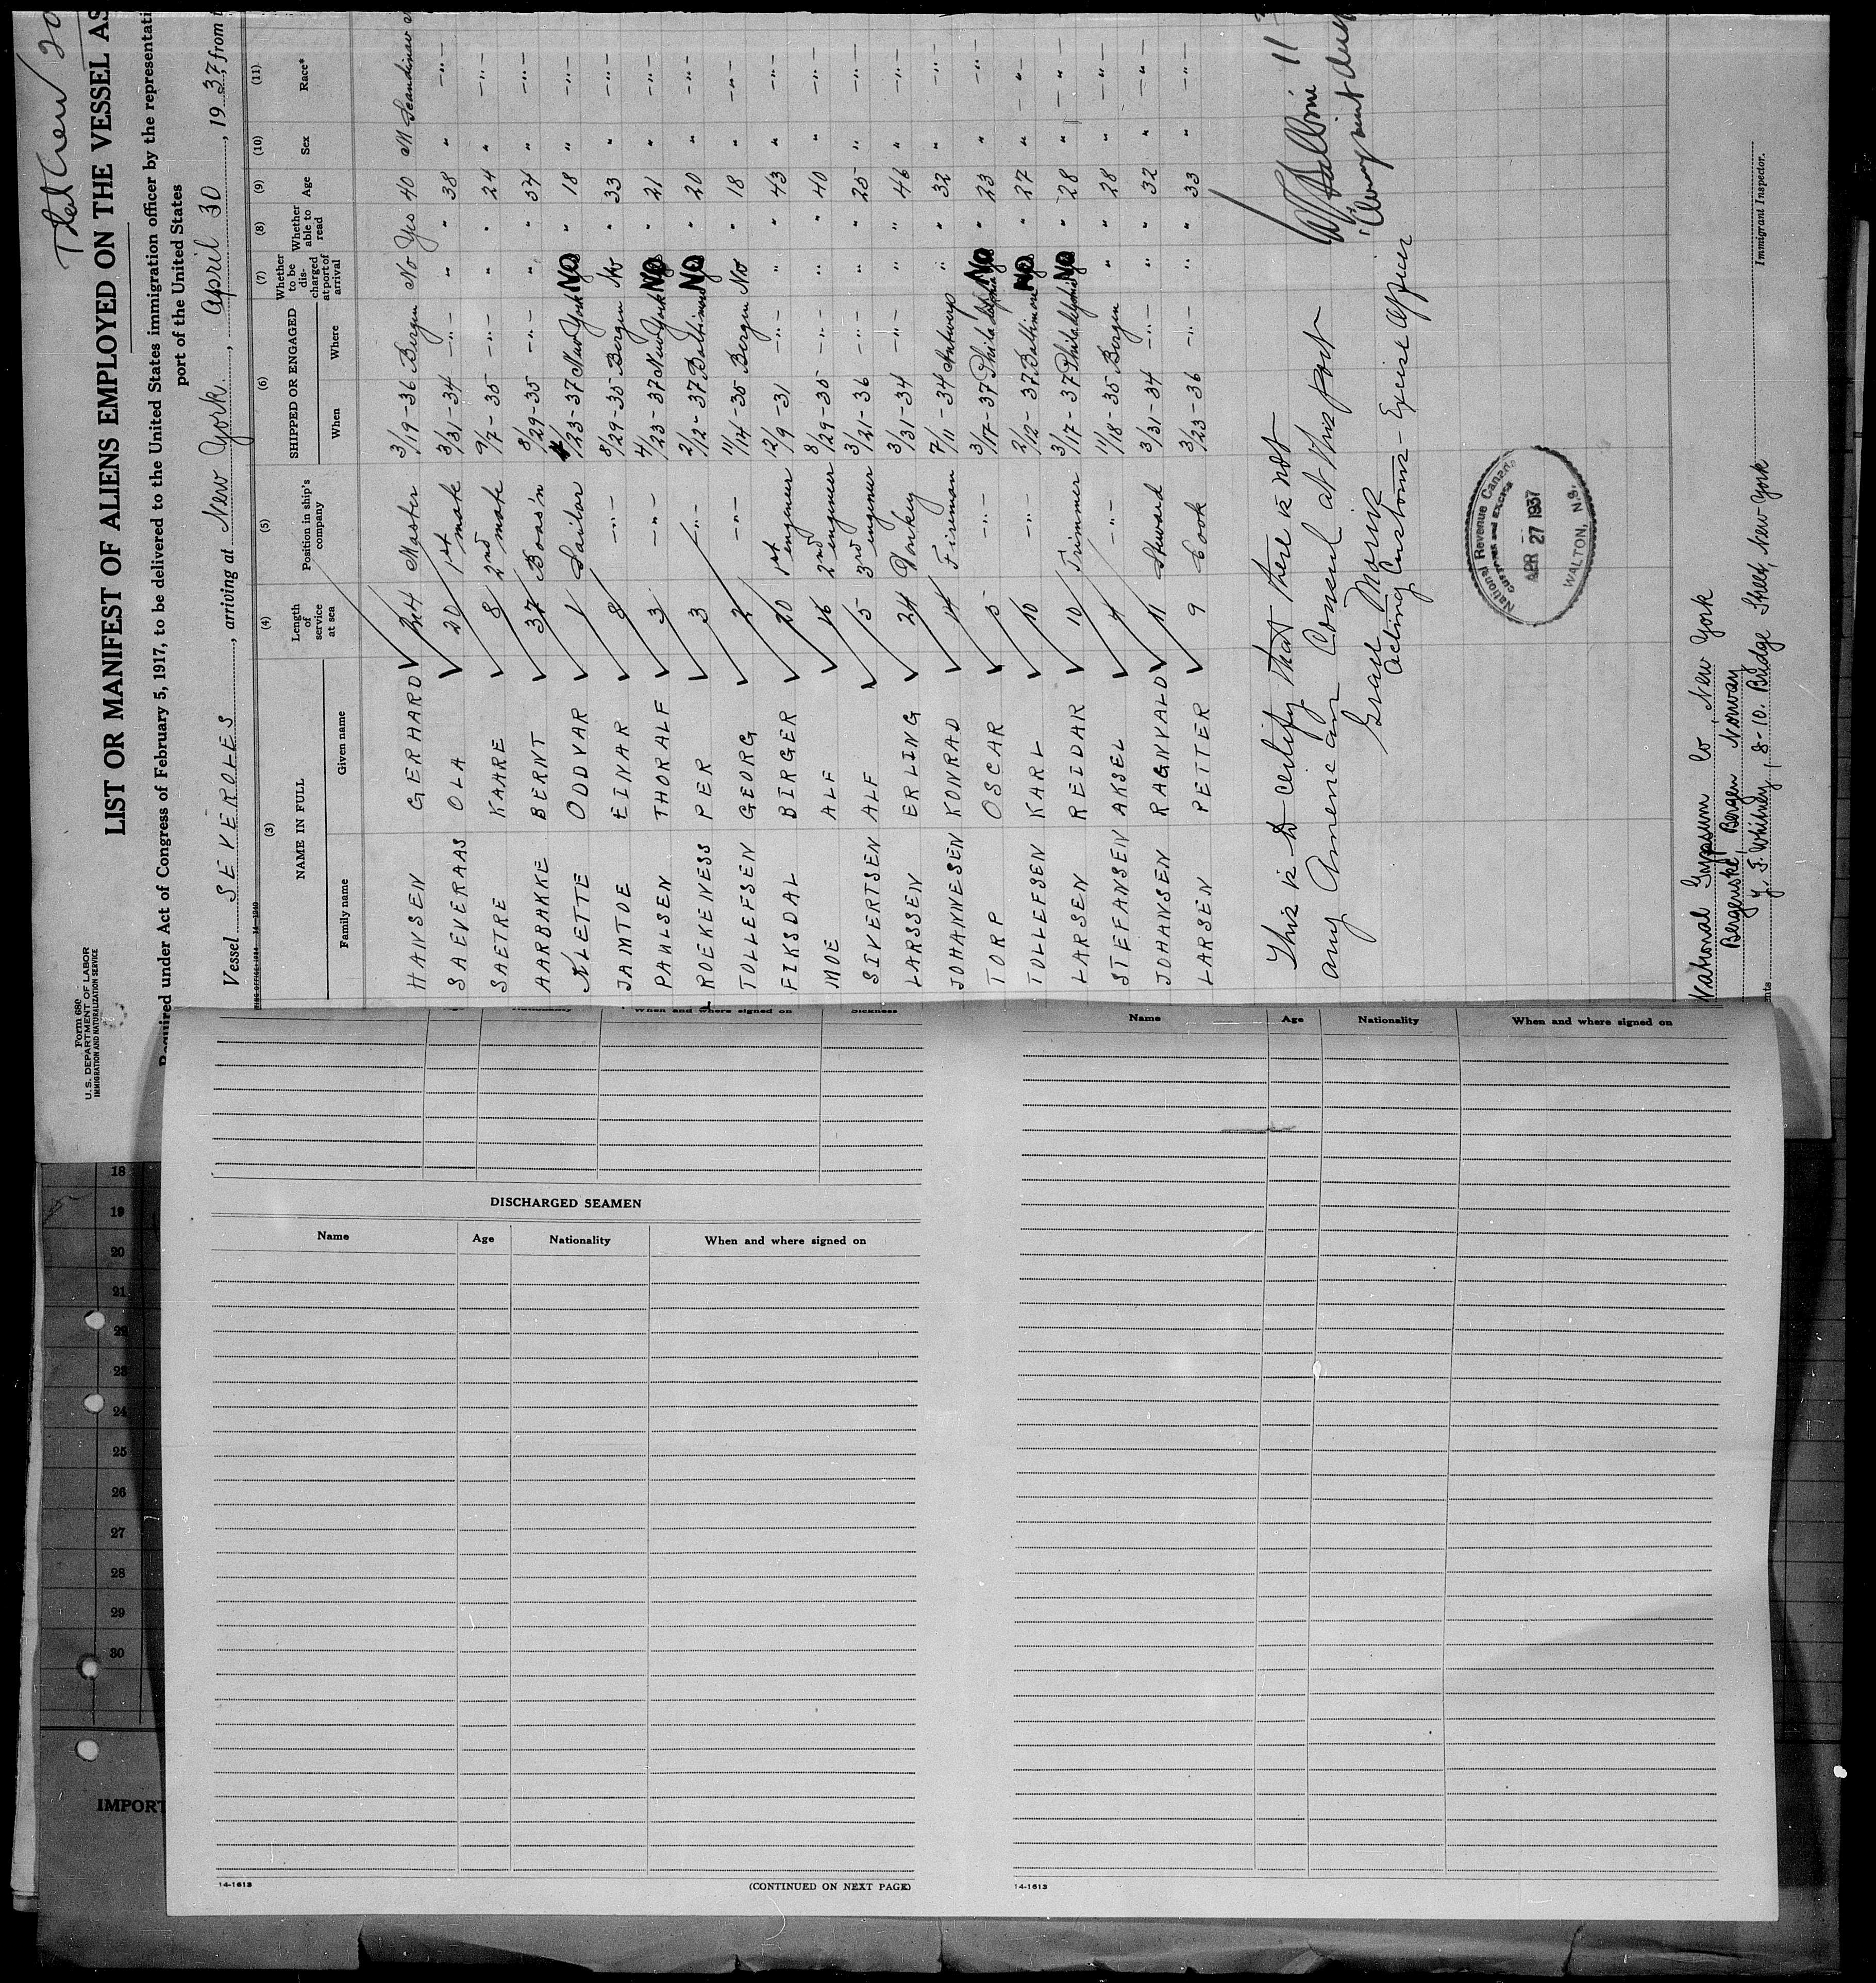 Total Crew 20
Form 680
U. S. DEPARTMENT OF LABOR
IMMIGRATION AND NATURALIZATION SERVICE
LIST OR MANIFEST OF ALIENS EMPLOYED ON THE VESSEL AS
Required under Act of Congress of February 5, 1917, to be delivered to the United States immigration officer by the representati
port of the United States
Vessel SEVEROLES, arriving at New York, April 30, 1937, from t
(3) (4) (5) (6) (7) (8) (9) (10) (11)
NAME IN FULL Length of service at sea Position in ship's company SHIPPED OR ENGAGED Whether to be discharged at port of arrival Whether able to read Age Sex Race*
Family name Given name When Where
HANSEN GERHARD 24 Master 3/19-36 Bergen No Yes 40 M Scandinav
SAEVERAAS OLA 20 1st mate 3/31-34 -"- " " 38 " -"-
SAETRE KAARE 8 2nd mate 9/7-35 -"- " " 24 " -"-
AARBAKKE BERNT 37 Boas'n 8/29-35 -"- " " 54 " -"-
KLETTE ODDVAR 1 Sailor 4/23-37 New York NO " 18 " -"-
JAMTOE EINAR 8 -"- 8/29-35 Bergen No " 33 " -"-
PAULSEN THORALF 3 -"- 4/23-37 New York NO " 21 " -"-
ROEKENESS PER 3 -"- 2/12-37 Baltimore NO " 20 " -"-
TOLLEFSEN GEORG 2 -"- 11/14-35 Bergen No " 18 " -"-
FIKSDAL BIRGER 20 1st engineer 12/9-31 -"- " " 43 " -"-
MOE ALF 16 2nd engineer 8/29-35 -"- " " 40 " -"-
SIVERTSEN ALF 5 3rd engineer 3/21-36 -"- " " 25 " -"-
LARSSEN ERLING 24 Donkey 3/31-34 -"- " " 46 " -"-
JOHANNESEN KONRAD 14 Fireman 7/11-34 Antwerp " " 32 " -"-
TORP OSCAR 5 -"- 3/17-37 Philadelphia NO " 23 " -"-
TOLLEFSEN KARL 10 -"- 2/12-37 Baltimore NO " 27 " -"-
LARSEN REIDAR 10 Trimmer 3/17-37 Philadelphia NO " 28 " -"-
STEFANSEN AKSEL 4 -"- 11/18-35 Bergen " " 28 " -"-
JOHANSEN RAGNVALD 11 Steward 3/31-34 -"- " " 32 " -"-
LARSEN PETTER 9 Cook 3/23-36 -"- " " 33 " -"-
This is to certify that there is not
any American Consul at this port
Acting Customs - Excise Officer
National Revenue Canada
CUSTOMS AND EXCISE
APR 27 1937
WALTON, N.S.
National Gypsum Co, New York
Bergenske, Bergen Norway
J. F. Whitney, 8-10. Bridge Street, New York
Immigrant Inspector.
nts
Nationality When and where signed on Sickness
DISCHARGED SEAMEN
Name Age Nationality When and where signed on
14-1613 (CONTINUED ON NEXT PAGE)
Name Age Nationality When and where signed on
14-1613
18
19
20
21
22
23
24
25
26
27
28
29
30
IMPORT